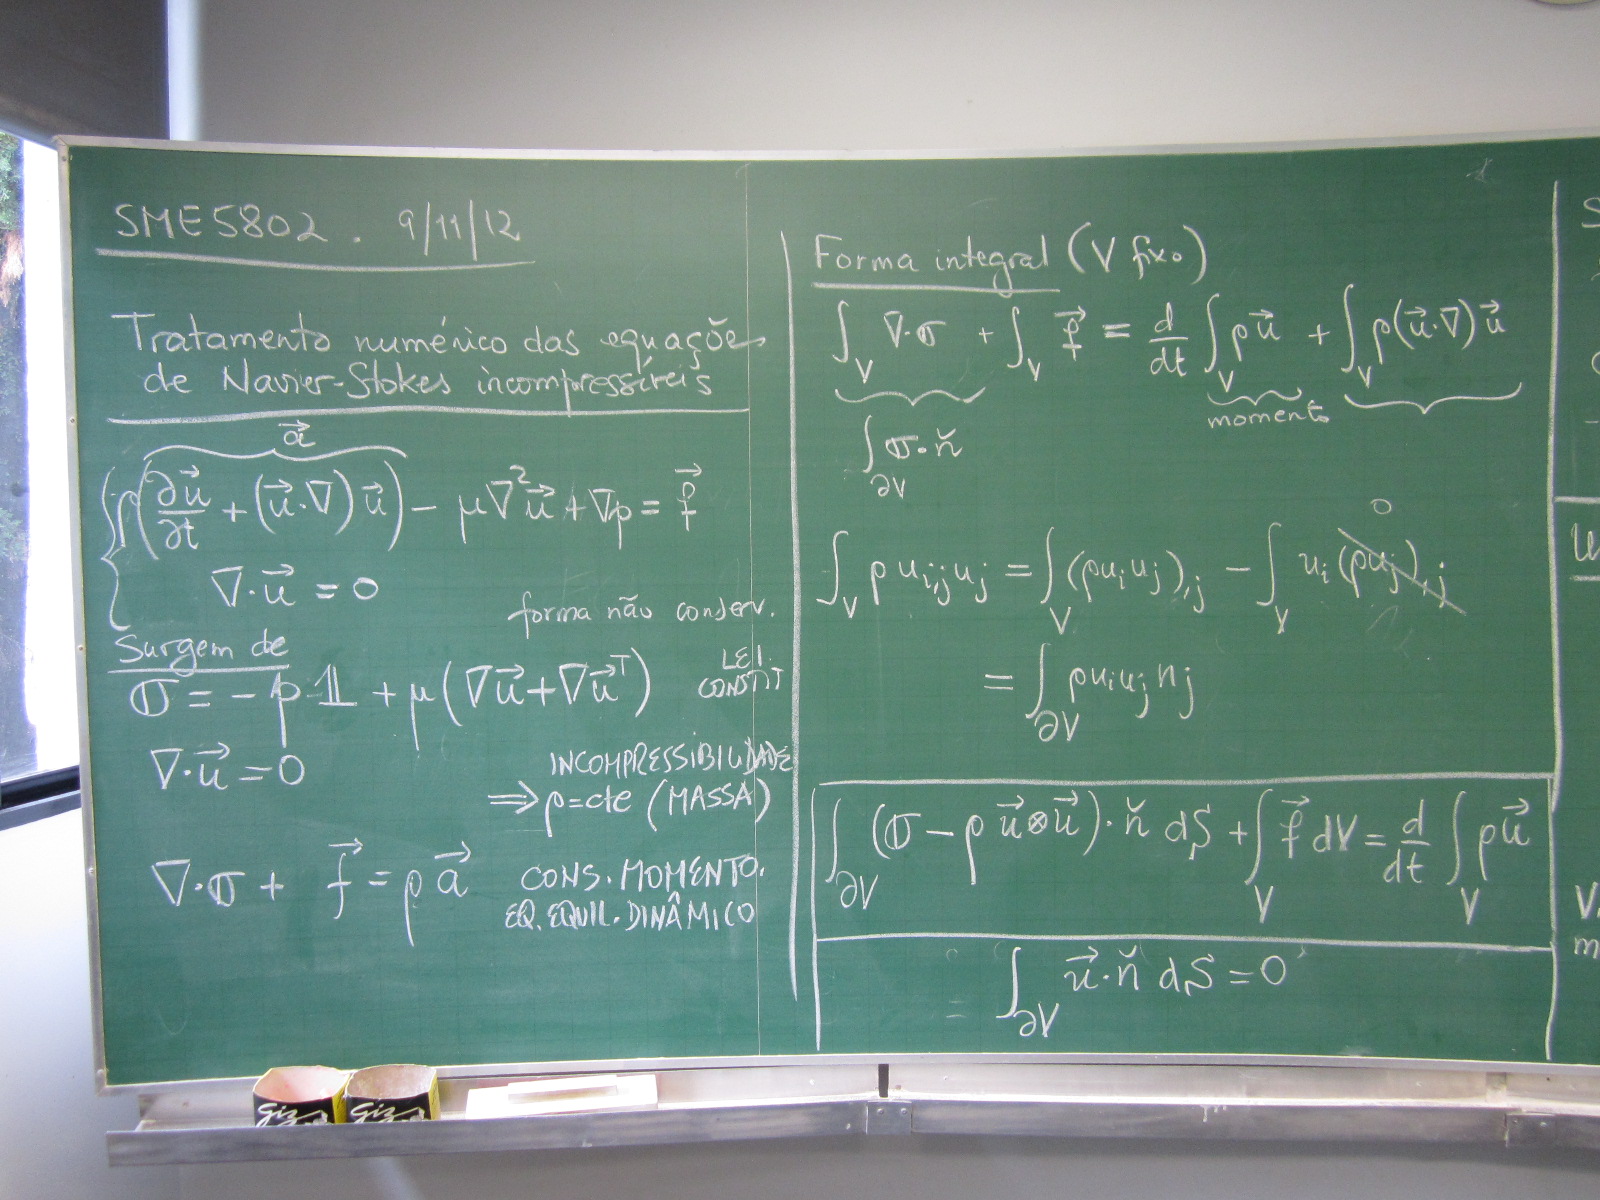 SME5802. 9/11/12
Tratamento numérico das equações
de Navier-Stokes incompressíveis
a⃗
ρ(∂u⃗/∂t + (u⃗·∇)u⃗) − μ∇²u⃗ + ∇p = f⃗
∇·u⃗ = 0
forma não conserv.
Surgem de
σ = −p 𝟙 + μ(∇u⃗ + ∇u⃗ᵀ) LEI CONSTIT
∇·u⃗ = 0 INCOMPRESSIBILIDADE
⇒ ρ = cte (MASSA)
∇·σ + f⃗ = ρa⃗ CONS. MOMENTO.
EQ. EQUIL. DINÂMICO
Forma integral (V fixo)
∫_V ∇·σ + ∫_V f⃗ = d/dt ∫_V ρu⃗ + ∫_V ρ(u⃗·∇)u⃗
momento
∫_∂V σ·ň
0
∫_V ρ u_i,j u_j = ∫_V (ρu_i u_j),j − ∫_V u_i (ρu_j),j
= ∫_∂V ρu_i u_j n_j
∫_∂V (σ − ρ u⃗⊗u⃗)·ň dS + ∫_V f⃗ dV = d/dt ∫_V ρu⃗
∫_∂V u⃗·ň dS = 0
giz
giz